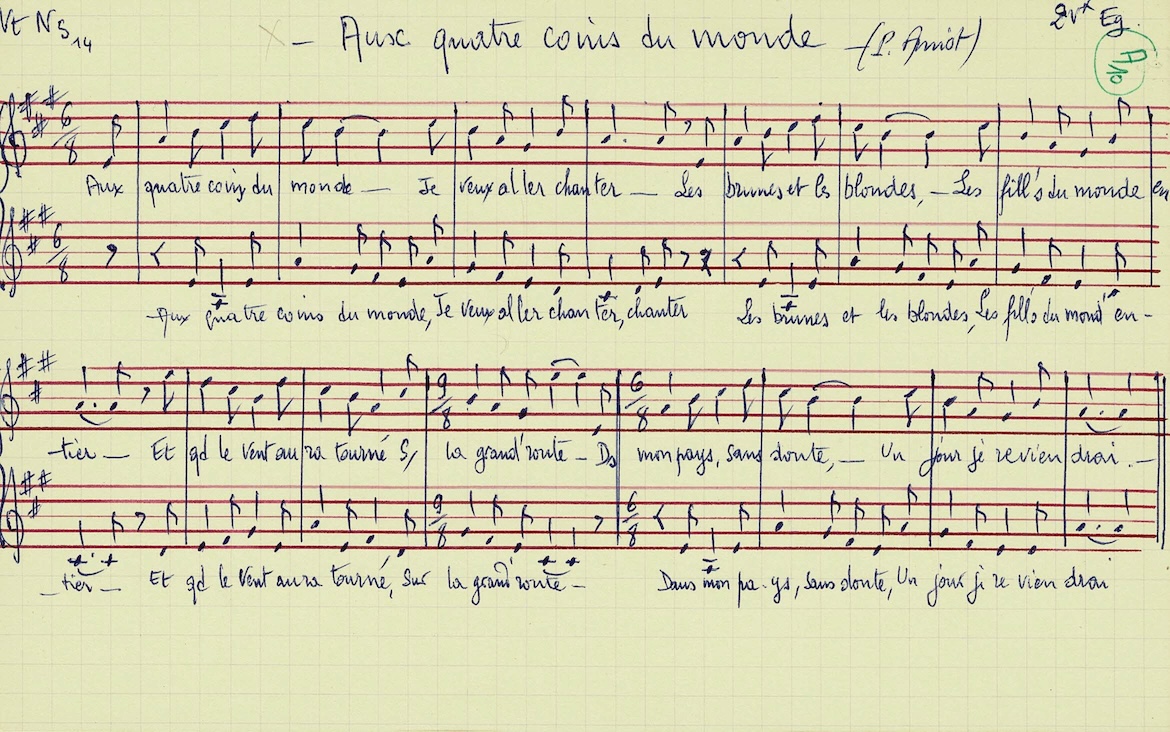 Vt N5 14 — Aux quatre coins du monde — (P. Amiot) 2vx Eg. A10
6/8
Aux quatre coins du monde — Je veux aller chanter — Les brunes et les blondes, — Les fill's du monde en
6/8
Aux quatre coins du monde, Je veux aller chanter, chanter Les brunes et les blondes, Les fill's du mond' en-
9/8 6/8
-tier — Et qd le vent aura tourné S/ la grand'route — Ds mon pays, sans doute, — Un jour je reviendrai. —
9/8 6/8
-tier — Et qd le vent aura tourné, Sur la grand'route — Dans mon pa-ys, sans doute, Un jour je reviendrai